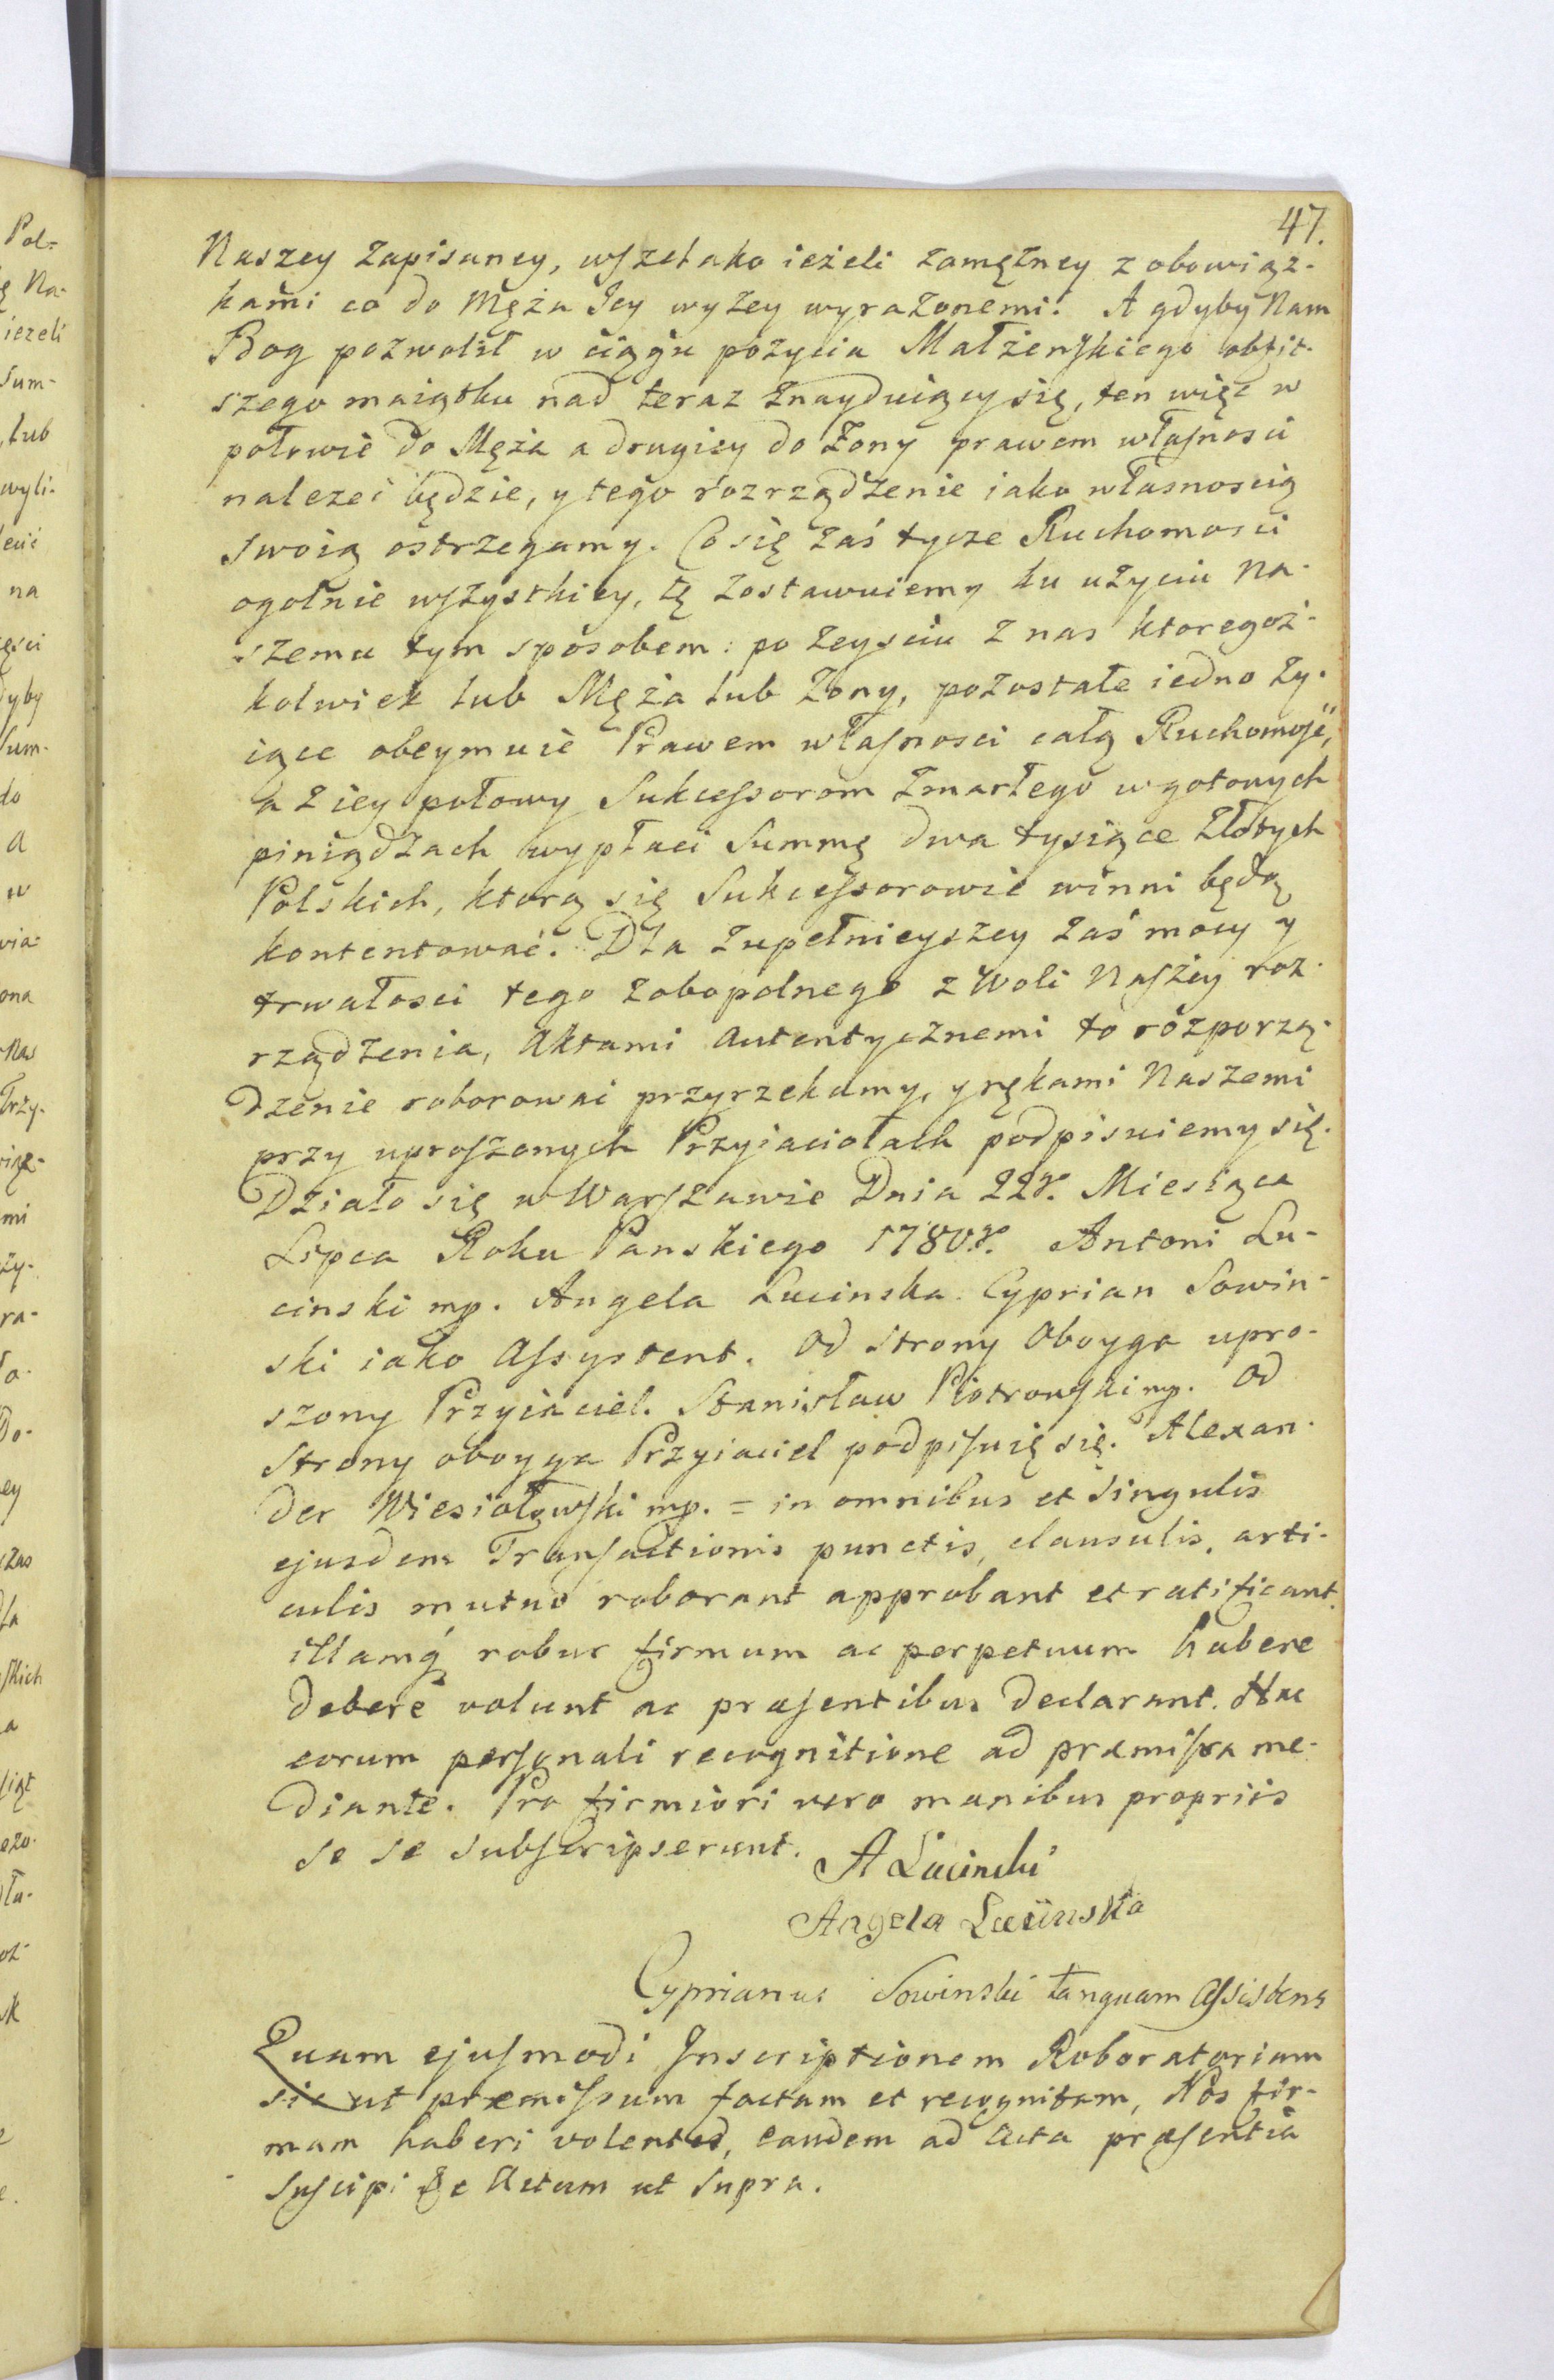 47.
Naszey zapisaney, wszelako ieżeli zamężney z obowiąz-
kami co do Męża Jey wyżey wyrażonemi. A gdyby Nam
Bog pozwolił w ciągu pożycia Małżenskiego obfit-
szego maiątku nad teraz znayduiący się, ten więc w
połowie do Męża a drugiey do Żony prawem własnosci
nalezeć będzie, y tego rozrządzenie iako własnoscią
swoią ostrzegamy. Co się zaś tycze Ruchomosci
ogolnie wszystkiey, tę zostawuiemy ku użyciu Na-
szemu tym sposobem: po zeysciu z nas ktoregoż-
kolwiek lub Męża lub Żony, pozostałe iedno ży-
iące obeymuie Prawem własnosci całą Ruchomość,
a z iey połowy Sukcessorom zmarłego w gotowych
piniądzach wypłaci Summę dwa tysiące Złotych
Polskich, ktorą się Sukcessorowie winni będą
kontentować. Dla zupełnieyszey zaś mocy y
trwałosci tego zobopolnego z Woli Naszey roz-
rządzenia, Aktami Autentycznemi to rozporzą-
dzenie roborować przyrzekamy, y rękami Naszemi
przy uproszonych Przyiaciołach podpisuiemy się.
Działo się w Warszawie Dnia 22r. Miesiąca
Lipca Roku Panskiego 1780r. Antoni Lu-
cinski mp. Angela Lucinska. Cyprian Sowin-
ski iako Assystent. Od strony Oboyga upro-
szony Przyiaciel. Stanisław Piotrowski mp. Od
Strony oboyga Przyiaciel podpisuię się. Alexan-
der Wiesiołowski mp. = in omnibus et singulis
ejusdem Transactionis punctis, clausulis, arti-
culis mutuo roborant approbant et ratificant.
illamq́ robur firmum ac perpetuum habere
debere volunt ac præsentibus declarant. Hac
eorum personali recognitione ad præmissa me-
diante. Pro firmiori vero manibus propriis
se se subscripserunt. A Lucinski
Angela Lucinska
Cyprianus Sowinski tanquam Assistens
Quam ejusmodi Inscriptionem Roboratoriam
sic ut præmissum factam et recognitam, Nos fir-
mam haberi volentes, eandem ad Acta præsentia
suscipi Actum ut supra.